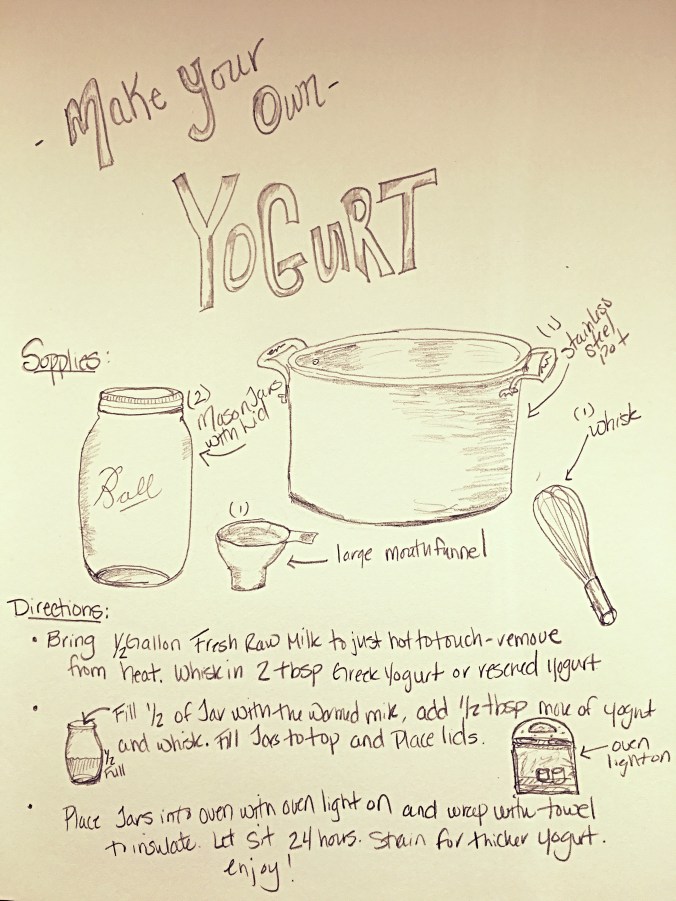 - Make Your
Own -
YOGURT
Supplies:
(1) Stainless
Steel
pot
(2) Mason Jars
with Lid
Ball
(1) Whisk
(1)
large mouth funnel
Directions:
• Bring 1/2 Gallon Fresh Raw Milk to just hot to touch - remove
from heat. Whisk in 2 tbsp Greek Yogurt or reserved Yogurt
• Fill 1/2 of Jar with the warmed milk, add 1/2 tbsp more of yogurt
and whisk. Fill Jars to top and Place lids.
1/2
Full
oven
light on
• Place Jars into oven with oven light on and wrap with towel
to insulate. Let Sit 24 hours. Strain for thicker yogurt.
enjoy!